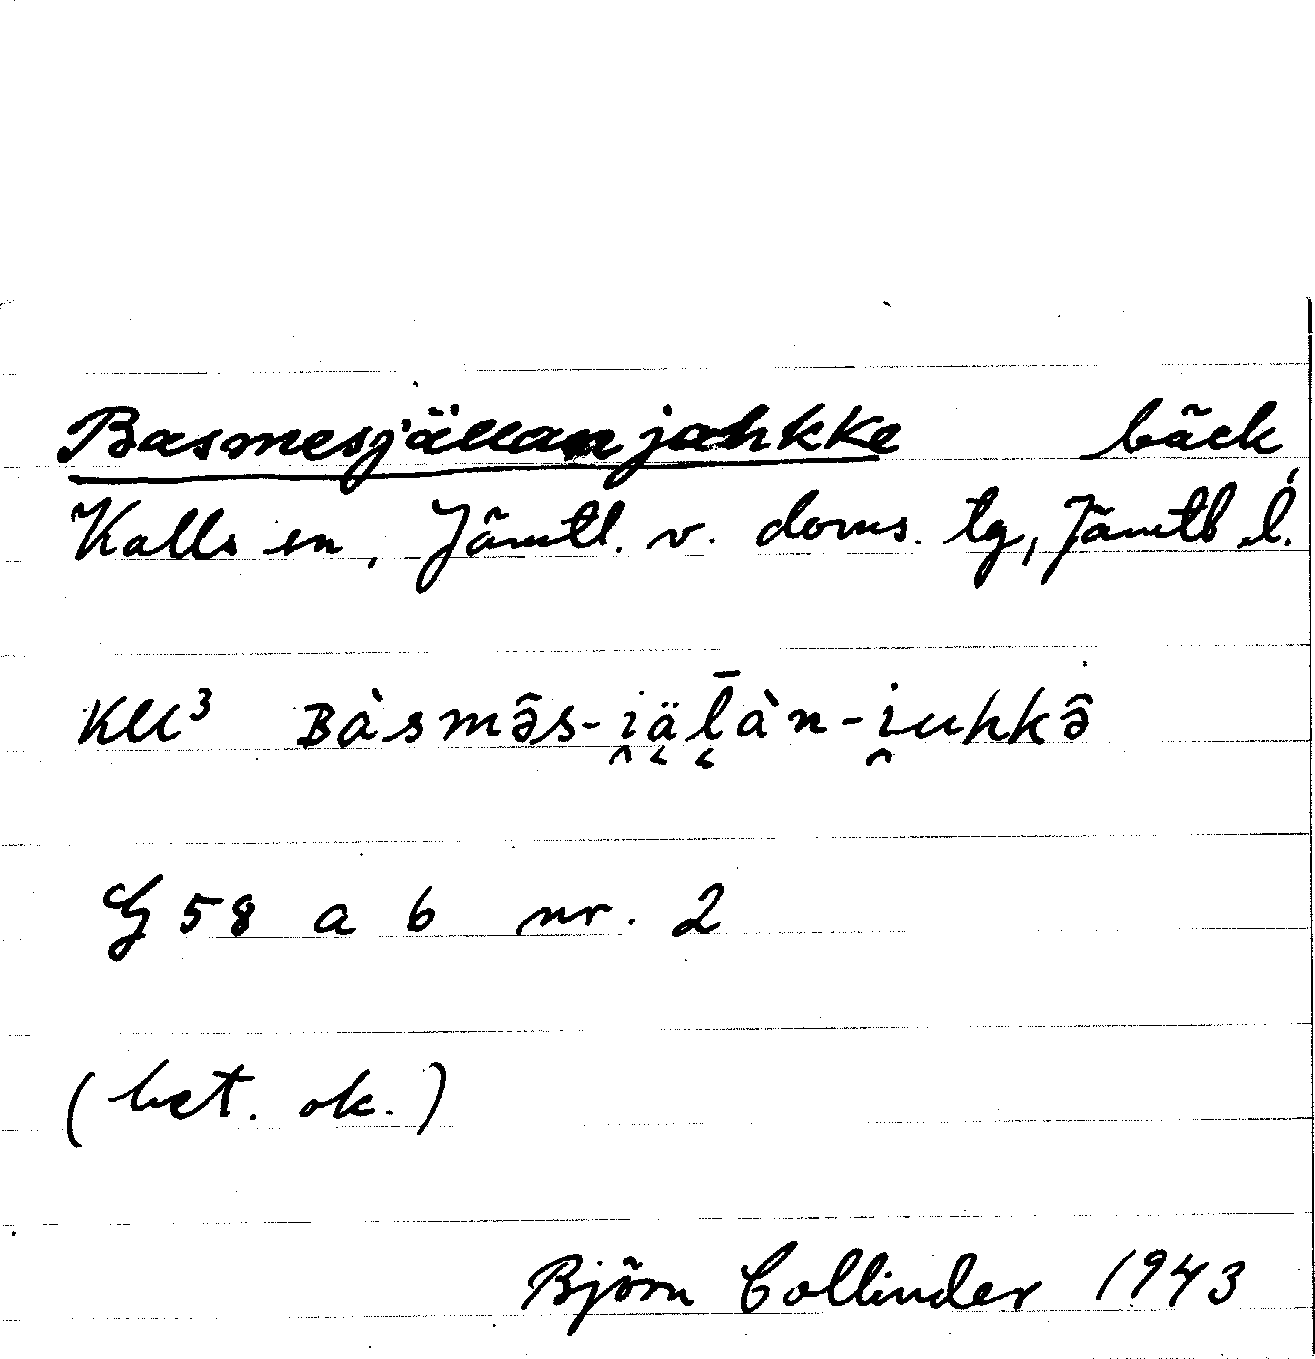 Basmesjällanjahkke bäck,
Kalls sn, Jämtl. v. doms. tg, Jämtl l.
KM³ Bàsmə̂s-i̯äl̄àn-i̯uhkə̂
G 58 a b nr. 2
(bet. ok.)
Björn Collinder 1943